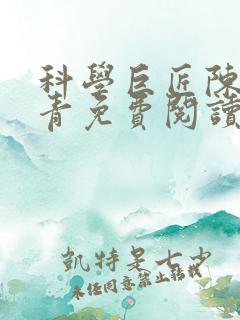 科學巨匠陳
青免費閱讀
凱特是七少
未經同意禁止轉載